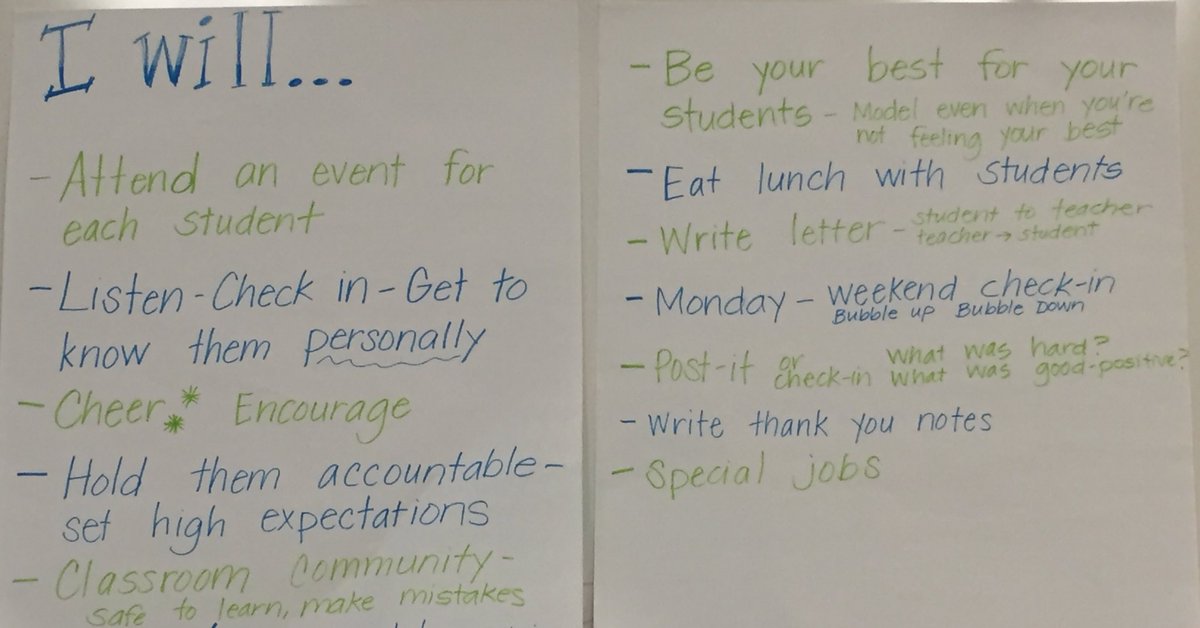 I will...
- Attend an event for
each student
- Listen - Check in - Get to
know them personally
- Cheer Encourage
- Hold them accountable -
set high expectations
- Classroom Community -
safe to learn, make mistakes
- Be your best for your
students - Model even when you're
not feeling your best
- Eat lunch with students
- Write letter - student to teacher
teacher → student
- Monday - weekend check-in
Bubble up Bubble Down
- Post-it or check-in what was hard?
what was good-positive?
- Write thank you notes
- Special jobs